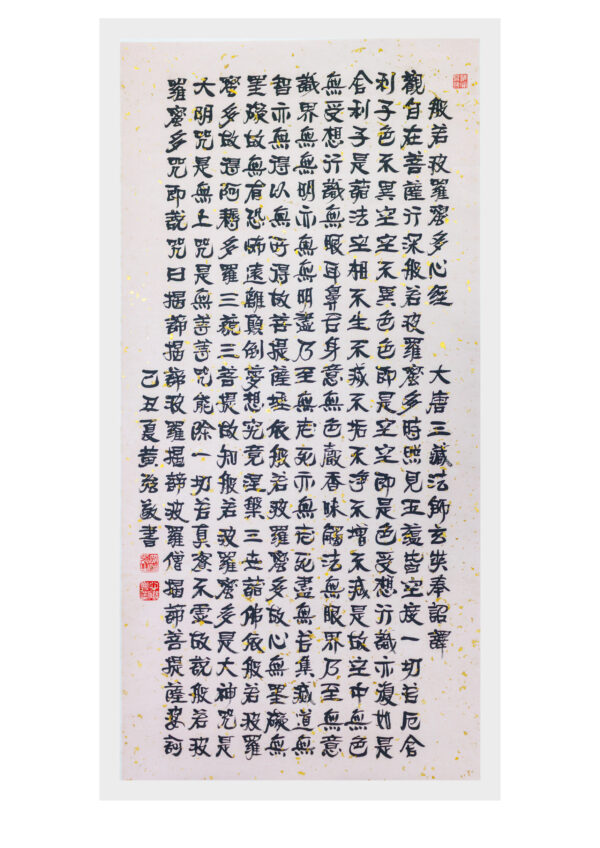 般若波羅蜜多心經 大唐三藏法師玄奘奉詔譯
觀自在菩薩行深般若波羅蜜多時照見五蘊皆空度一切苦厄舍
利子色不異空空不異色色即是空空即是色受想行識亦復如是
舍利子是諸法空相不生不滅不垢不淨不增不減是故空中無色
無受想行識無眼耳鼻舌身意無色聲香味觸法無眼界乃至無意
識界無無明亦無無明盡乃至無老死亦無老死盡無苦集滅道無
智亦無得以無所得故菩提薩埵依般若波羅蜜多故心無罣礙無
罣礙故無有恐怖遠離顛倒夢想究竟涅槃三世諸佛依般若波羅
蜜多故得阿耨多羅三藐三菩提故知般若波羅蜜多是大神咒是
大明咒是無上咒是無等等咒能除一切苦真實不虛故說般若波
羅蜜多咒即說咒曰揭諦揭諦波羅揭諦波羅僧揭諦菩提薩婆訶
己丑夏黃書